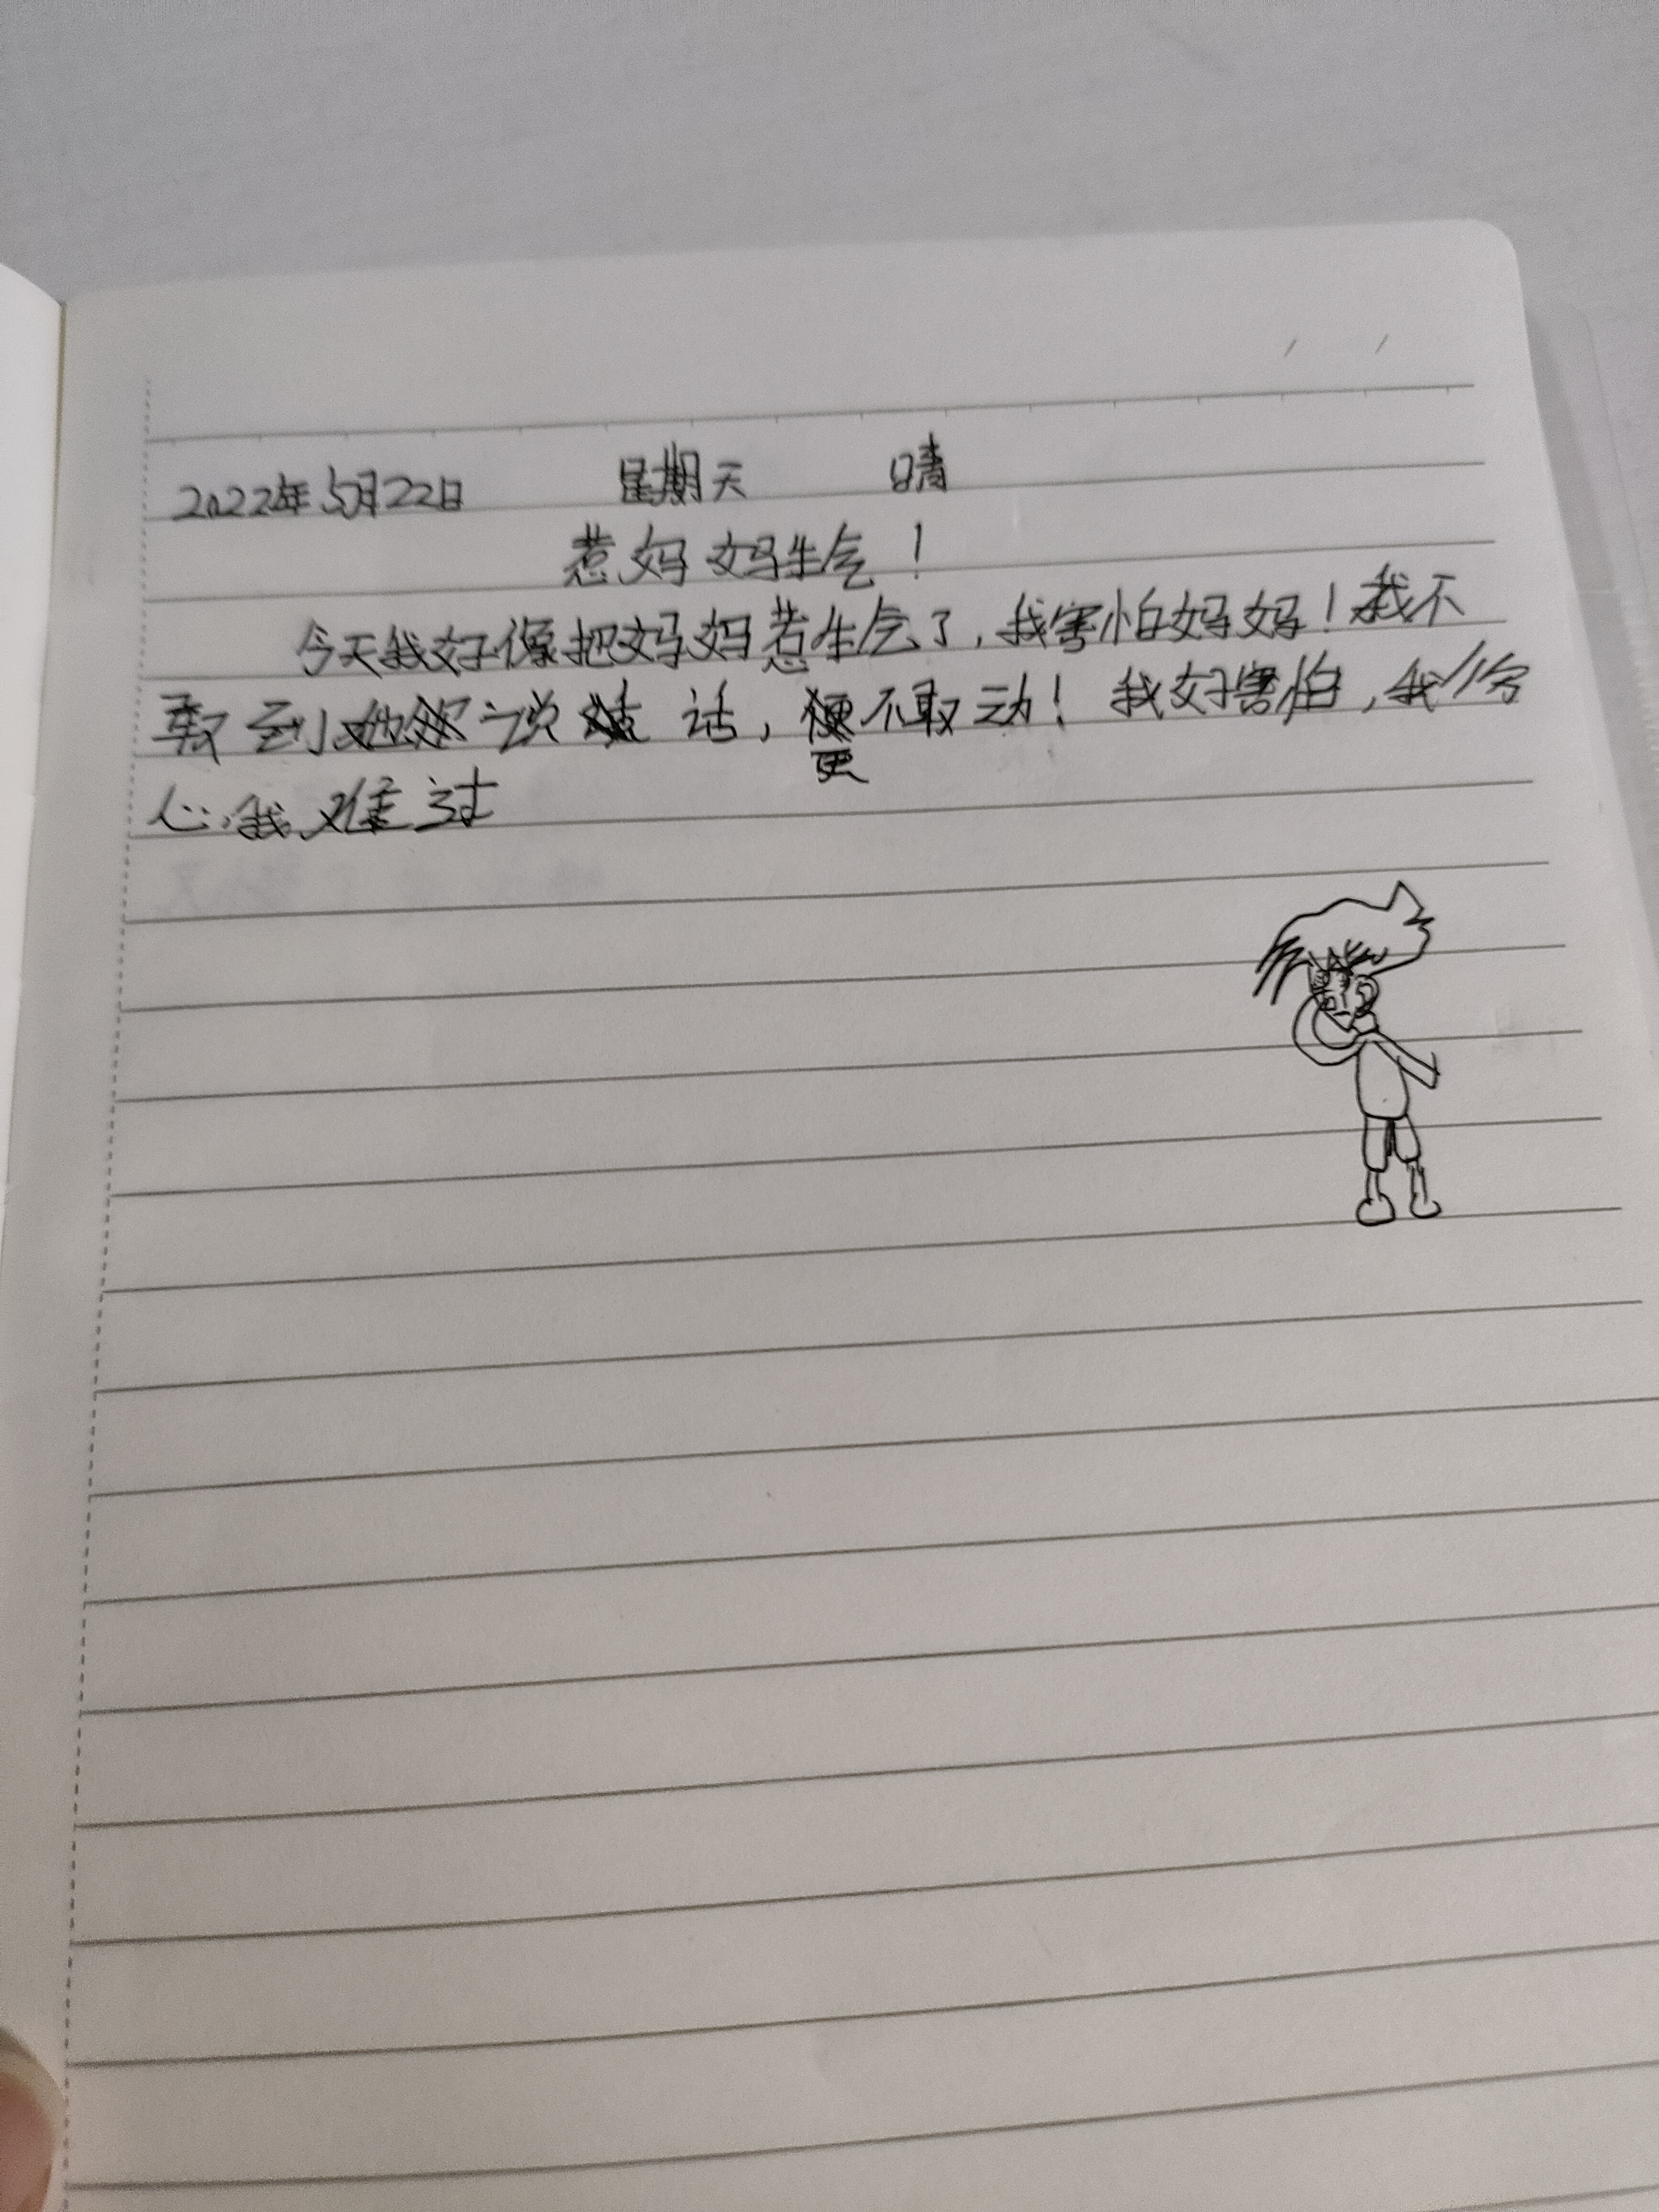 2022年5月22日 星期天 晴
惹妈妈生气!
今天我好像把妈妈惹生气了,我害怕妈妈!我不
到 说 话, 不敢动!我好害怕,我
更
心,我难过